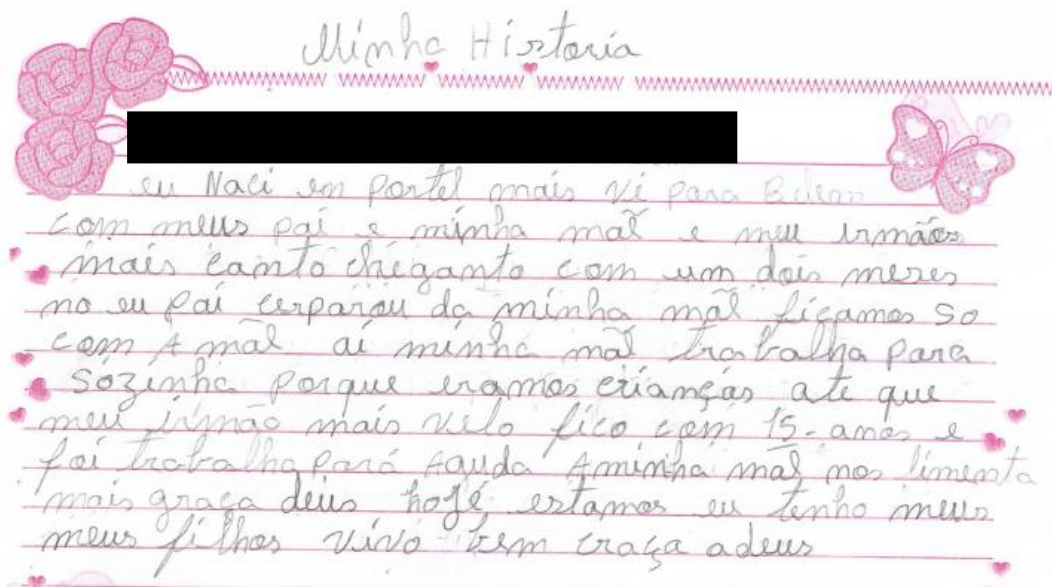 Minha Historia
eu Naci em Portel mais vi para Belem
com meus pai e minha mãe e meu irmãos
mais canto cheganto com um dois meses
no eu pai cerparou da minha mãe ficamos so
com A mãe ai minha mãe trabalha para
sózinha porque eramos crianças ate que
meu irmão mais velo fico com 15-anos e
foi trabalha pará Aguda Aminha mãe nos limenta
mais graça deus hojé estamos eu tenho meus
meus filhos vivo bem craça adeus